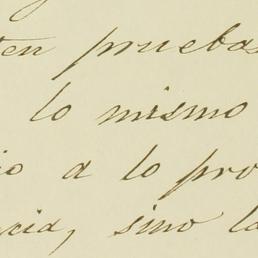 ten pruebas
lo mismo
io a lo pro
ncia, sino la